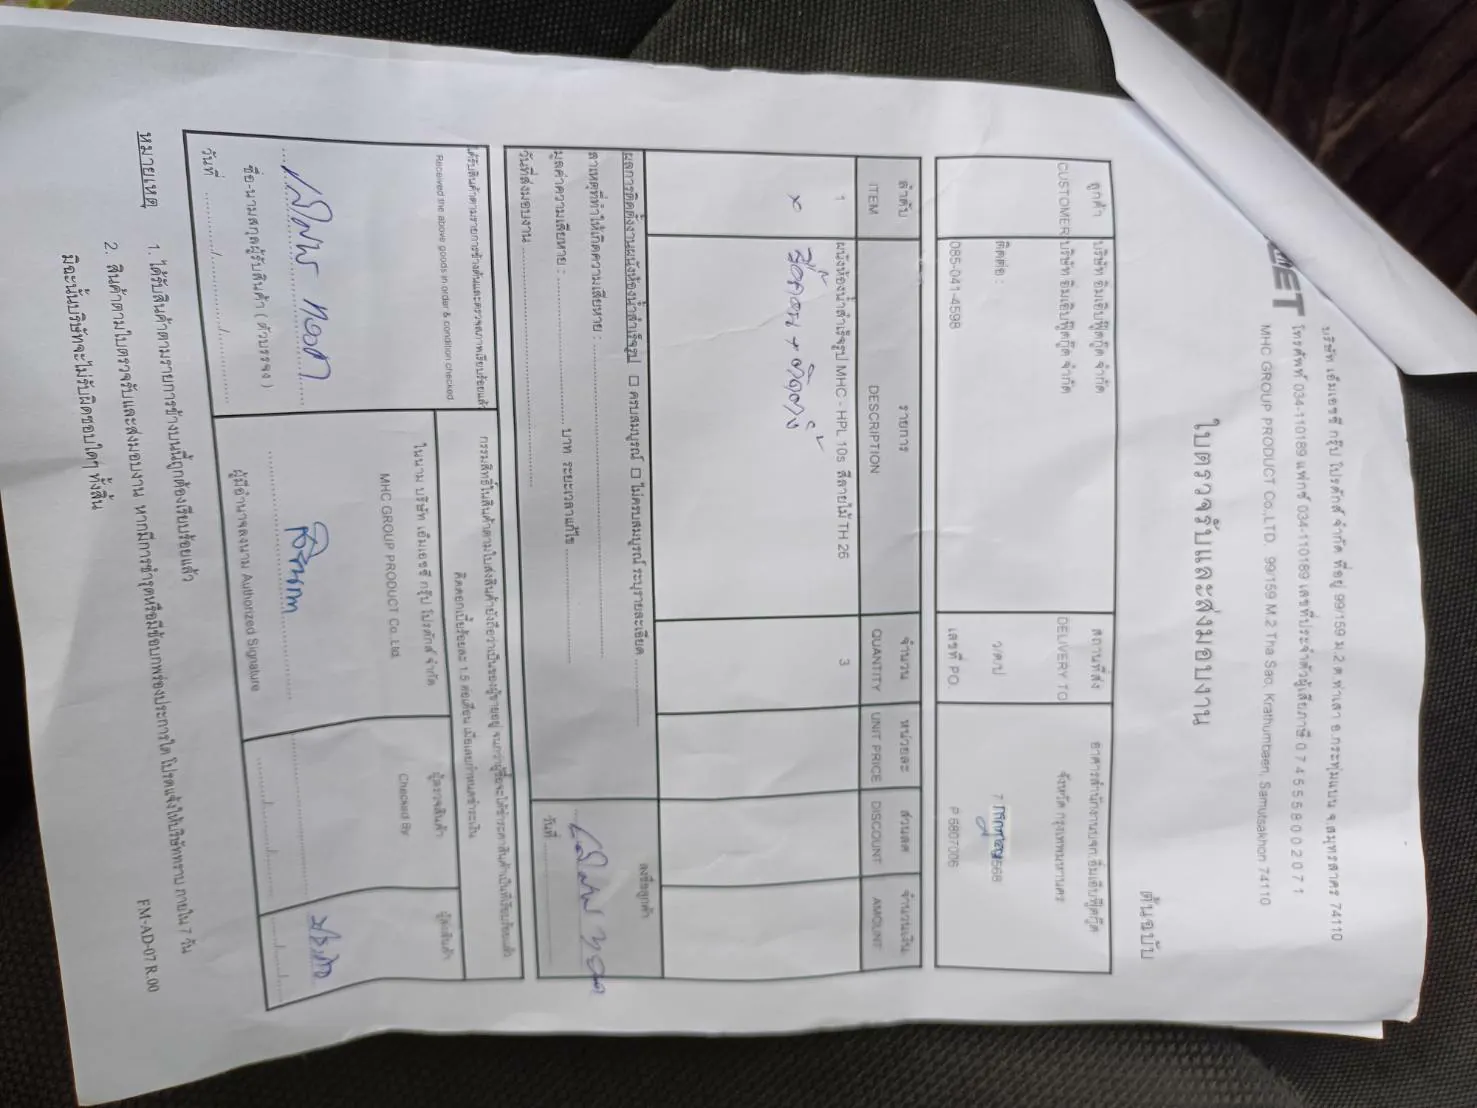 บริษัท เอ็มเอชซี กรุ๊ป โปรดักส์ จำกัด ที่อยู่ 99/159 ม.2 ต.ท่าเสา อ.กระทุ่มแบน จ.สมุทรสาคร 74110
โทรศัพท์ 034-110189 แฟกซ์ 034-110189 เลขที่ประจำตัวผู้เสียภาษี 0 7 4 5 5 5 8 0 0 2 0 7 1
MHC GROUP PRODUCT Co.,LTD. 99/159 M.2 Tha Sao, Krathumbaen, Samutsakhon 74110
ใบตรวจรับและส่งมอบงาน
ต้นฉบับ
ลูกค้า บริษัท อิมเอิบฟู๊ดกู๊ด จำกัด สถานที่ส่ง อาคารสำนักงานบจก.อิ่มเอิบฟู๊ดกู๊ด
CUSTOMER บริษัท อิมเอิบฟู๊ดกู๊ด จำกัด DELIVERY TO จังหวัด กรุงเทพมหานคร
ติดต่อ : ว/ด/ป 7 กรกฎาคม 2568
085-041-4598 เลขที่ PO. P 6807006
ลำดับ รายการ จำนวน หน่วยละ ส่วนลด จำนวนเงิน
ITEM DESCRIPTION QUANTITY UNIT PRICE DISCOUNT AMOUNT
1 ผนังห้องน้ำสำเร็จรูป MHC - HPL 10s สีลายไม้ TH 26 3
ผลการติดตั้งงานผนังห้องน้ำสำเร็จรูป ☐ ครบสมบูรณ์ ☐ ไม่ครบสมบูรณ์ ระบุรายละเอียด ....................
ลงชื่อลูกค้า
สาเหตุที่ทำให้เกิดความเสียหาย : ....................
มูลค่าความเสียหาย : .................... บาท ระยะเวลาแก้ไข ....................
วันที่ส่งมอบงาน ....................
วันที่ ....................
ได้รับสินค้าตามรายการข้างต้นและตรวจสภาพเรียบร้อยแล้ว
Received the above goods in order & condition checked
ชื่อ-นามสกุลผู้รับสินค้า ( ตัวบรรจง )
วันที่ ............/............/............
กรรมสิทธิ์ในสินค้าตามใบส่งสินค้ายังถือว่าเป็นของผู้ขายอยู่ จนกว่าผู้ซื้อจะได้ชำระค่าสินค้าเป็นที่เรียบร้อยแล้ว
คิดดอกเบี้ยร้อยละ 1.5 ต่อเดือน เมื่อเลยกำหนดชำระเงิน
ในนาม บริษัท เอ็มเอชซี กรุ๊ป โปรดักส์ จำกัด
MHC GROUP PRODUCT Co.,Ltd.
ผู้มีอำนาจลงนาม Authorized Signature
ผู้ตรวจสินค้า
Checked By
ผู้ส่งสินค้า
หมายเหตุ 1. ได้รับสินค้าตามรายการข้างบนนี้ถูกต้องเรียบร้อยแล้ว
2. สินค้าตามใบตรวจรับและส่งมอบงาน หากมีการชำรุดหรือมีข้อบกพร่องประการใด โปรดแจ้งให้บริษัททราบ ภายใน 7 วัน
มิฉะนั้นบริษัทจะไม่รับผิดชอบใดๆ ทั้งสิ้น
FM-AD-07 R.00